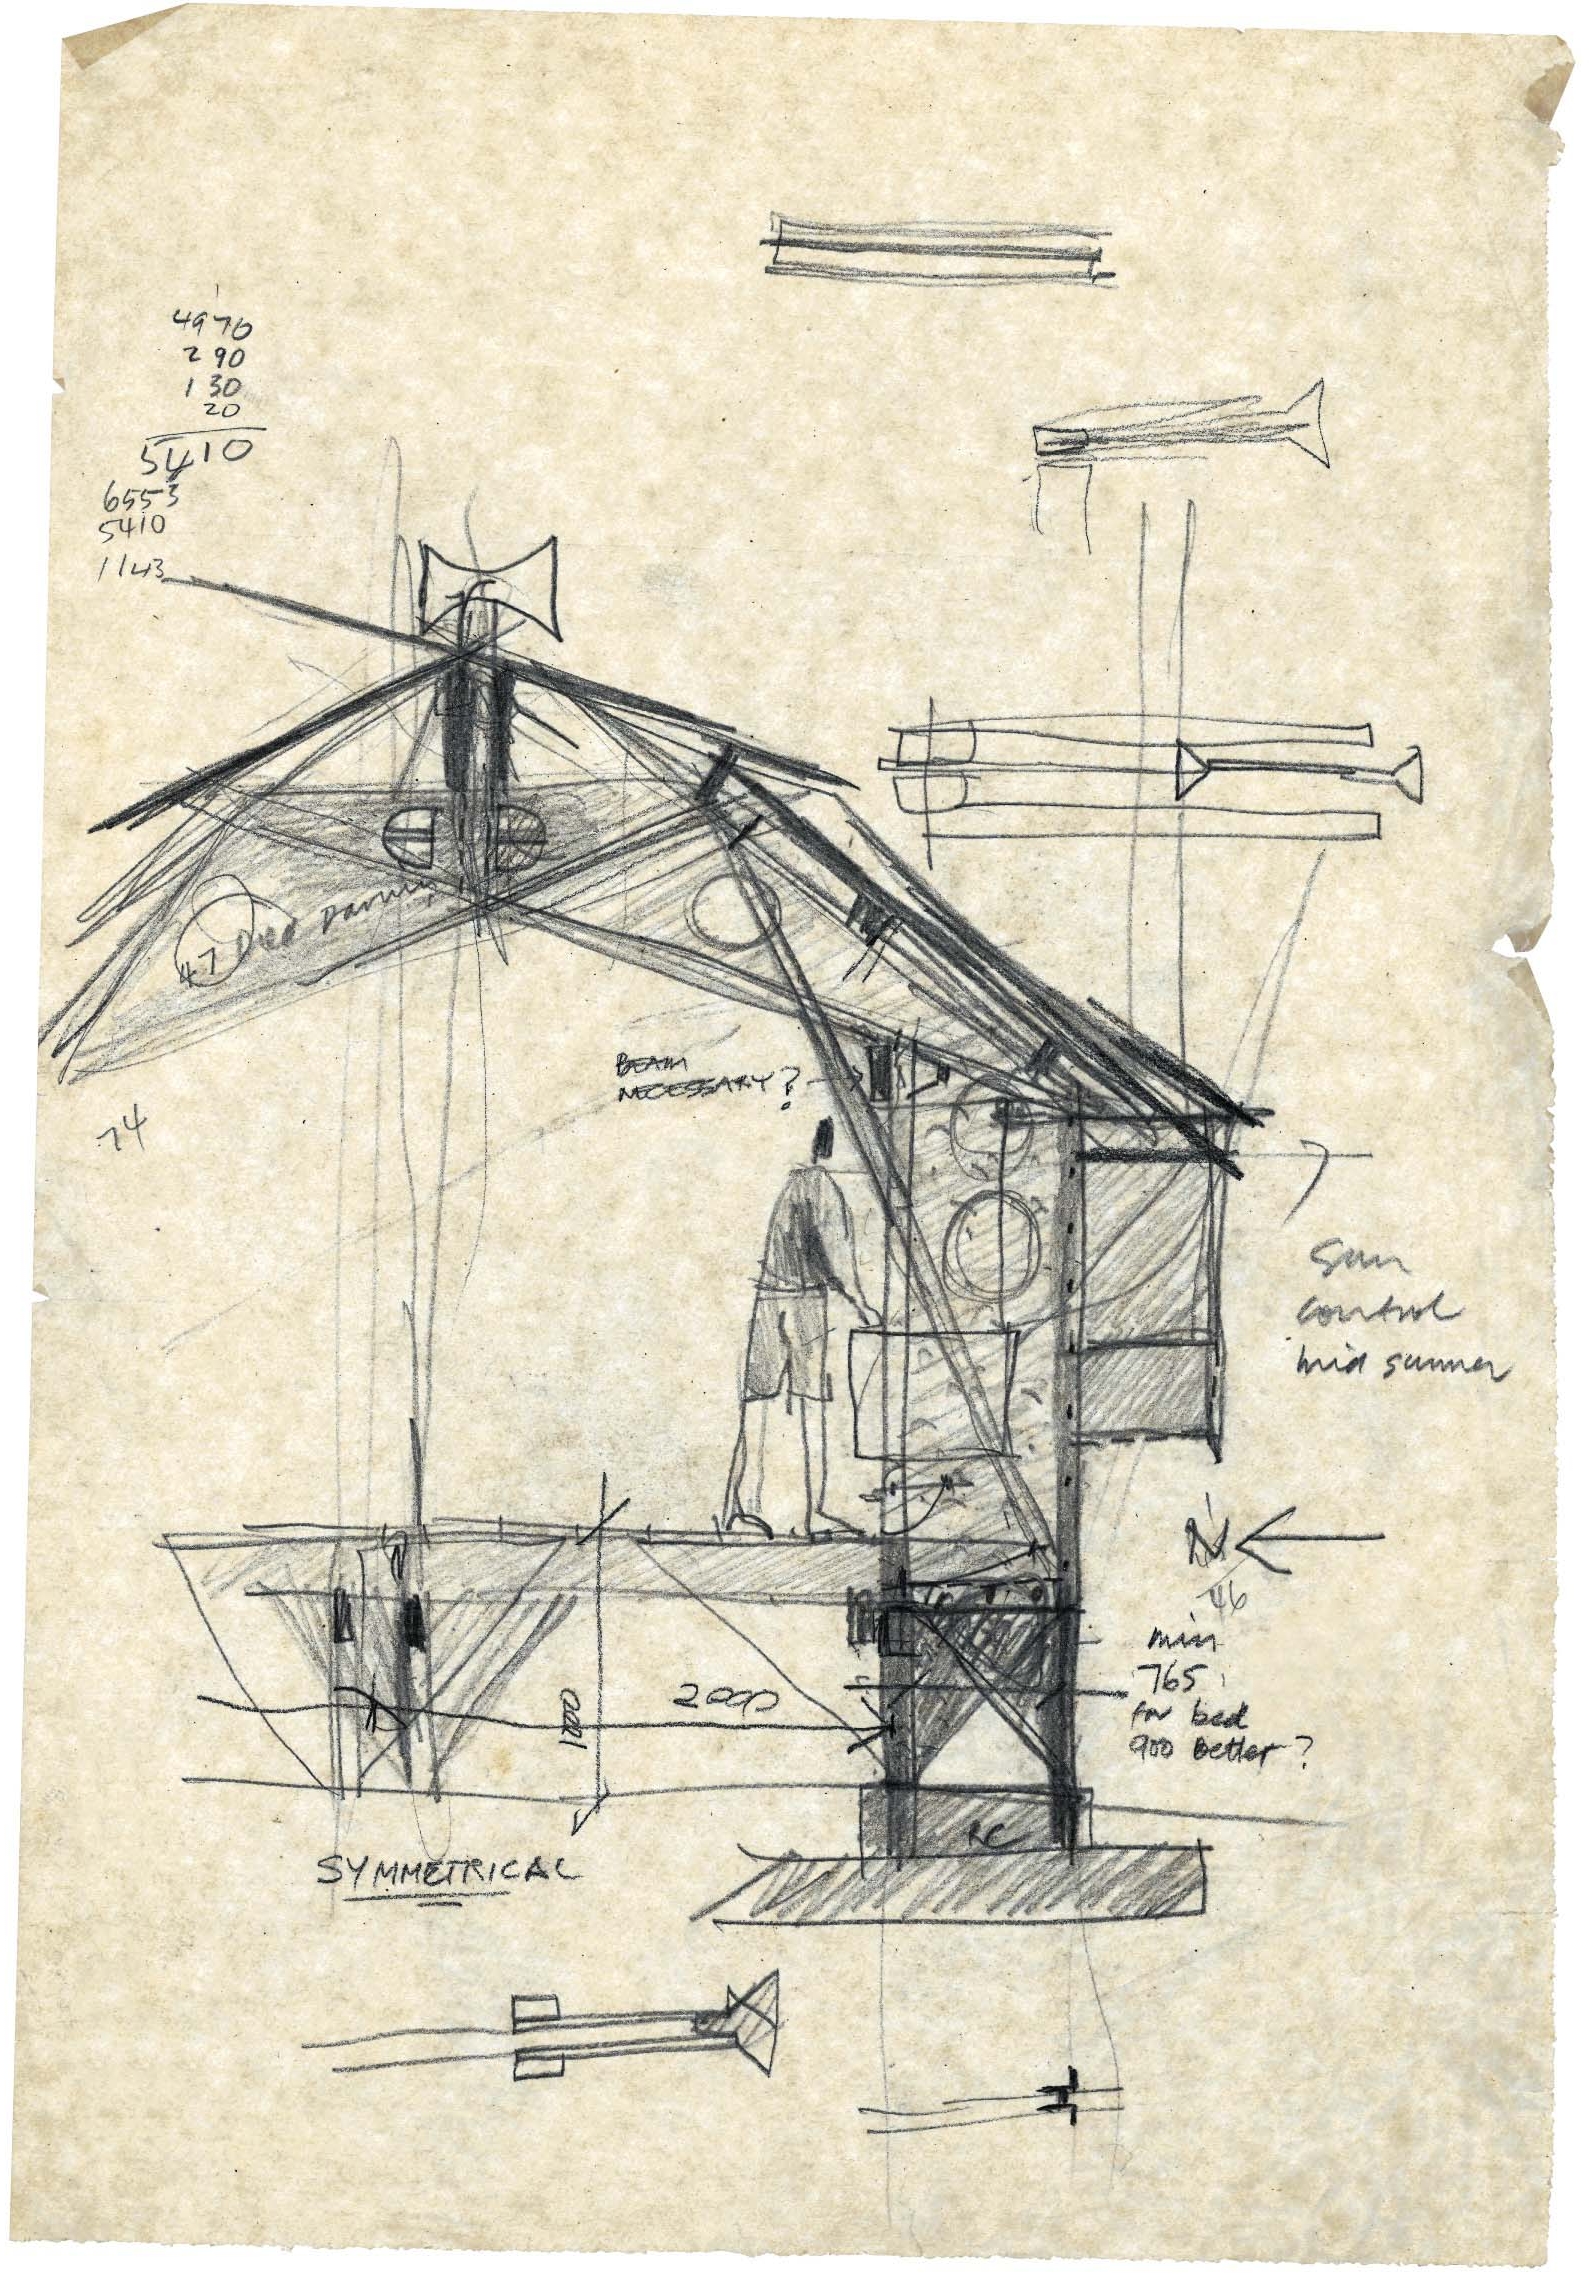 4970
290
130
20
5410
6553
5410
1143
47 Dec Darwin
BEAM
NECESSARY?
74
Sun
control
mid summer
N
46
min
765
for bed
900 better?
2000
1000
RC
SYMMETRICAL